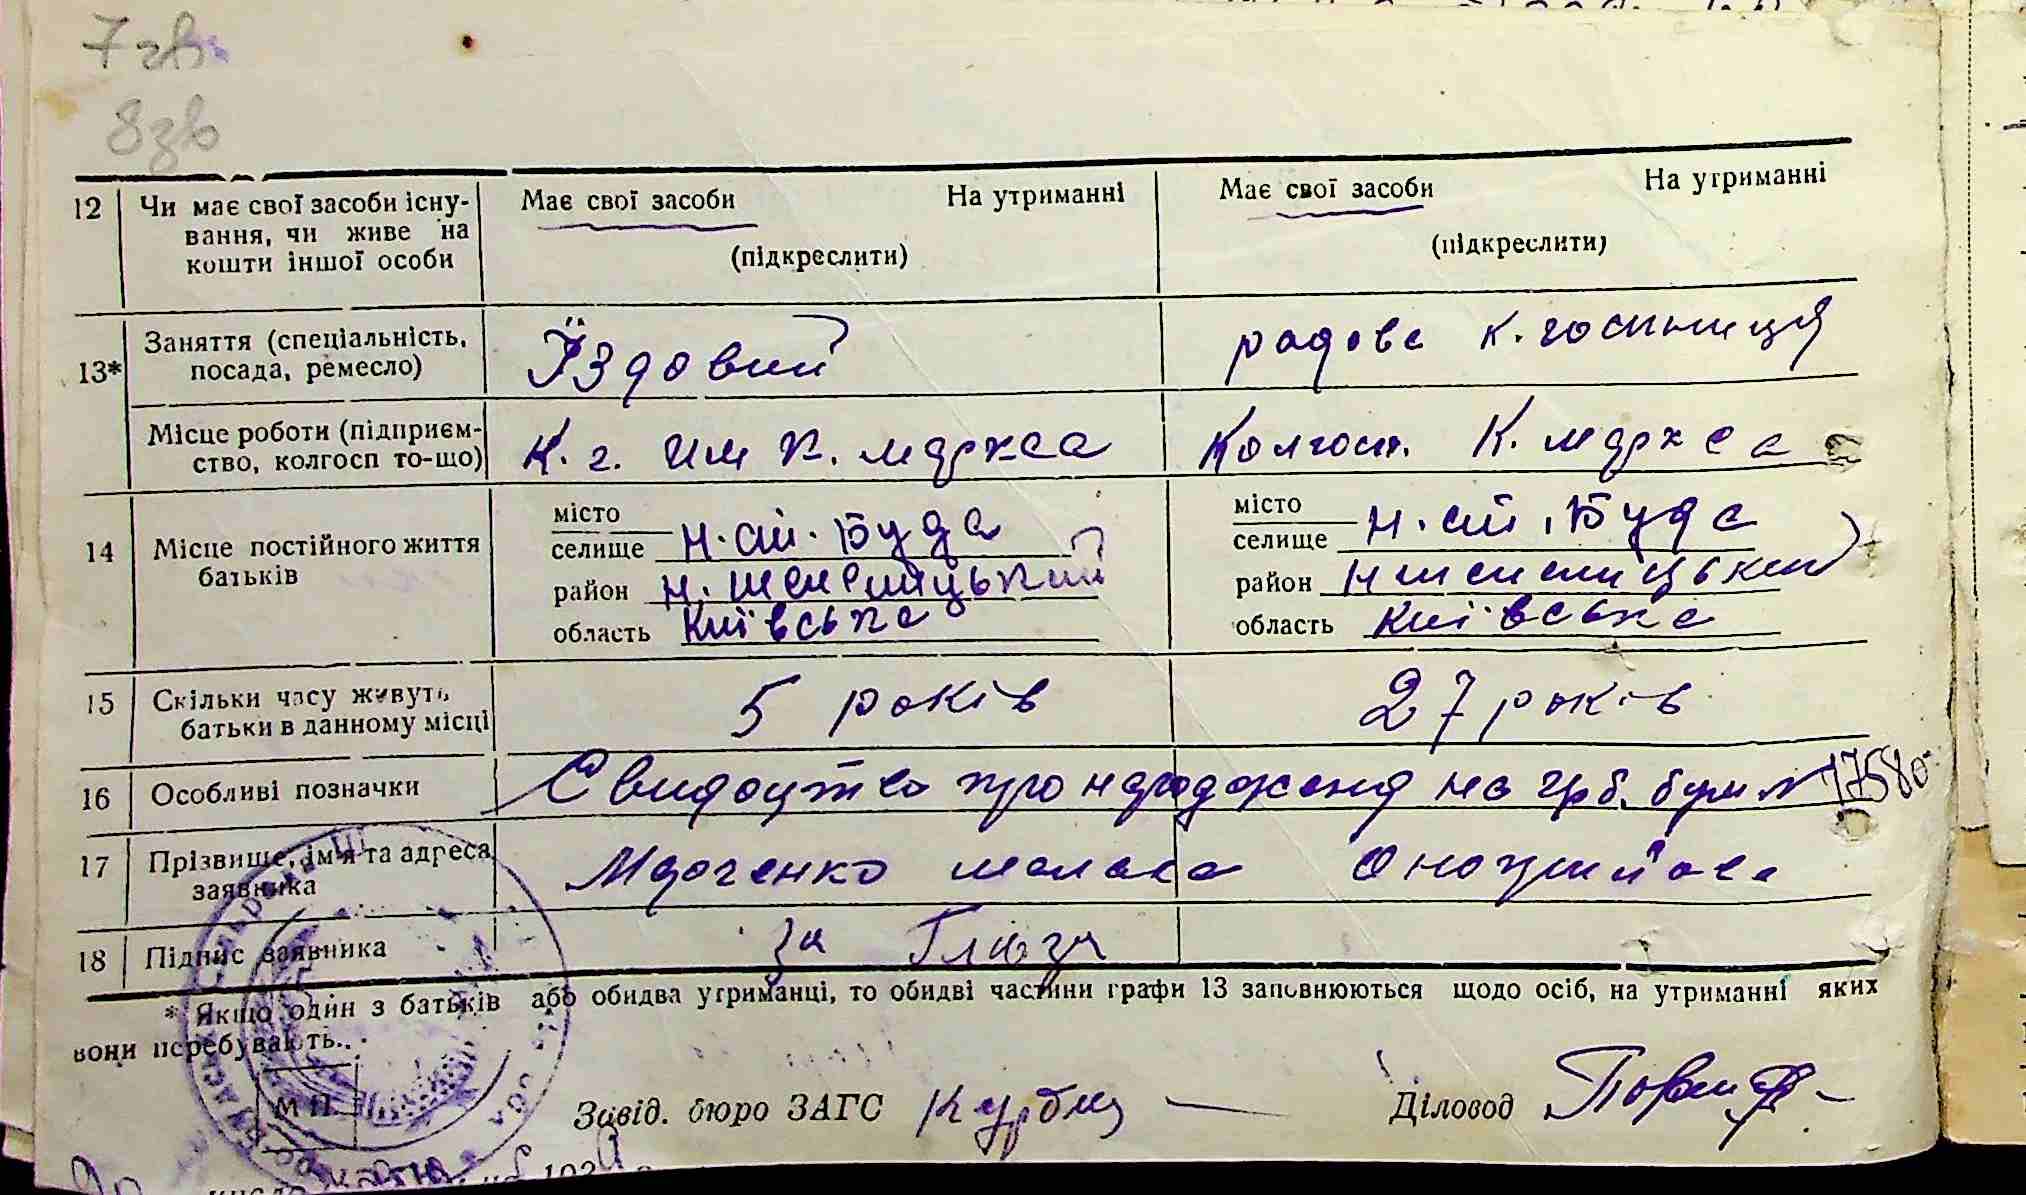 7 зв.
8зв
12 Чи має свої засоби існу- Має свої засоби На утриманні Має свої засоби На утриманні
вання, чи живе на
кошти іншої особи (підкреслити) (підкреслити)
13* Заняття (спеціальність, Їздовий рядова к. госпниця
посада, ремесло)
Місце роботи (підприєм- К. г. им К. маркса Колгосп. К. маркса
ство, колгосп то-що)
14 Місце постійного життя місто місто
батьків селище н. ст. Буда селище н. ст. Буда
район н. шепелицький район н шепелицький
область Київська область Київська
15 Скільки часу живуть 5 років 27 років
батьки в данному місці
16 Особливі позначки Свидоцтво про народження на грб. бум № 17580
17 Прізвище, ім'я та адреса Марченко Онопрійовна
заявника
18 Підпис заявника за
* Якщо один з батьків або обидва утриманці, то обидві частини графи 13 заповнюються щодо осіб, на утриманні яких
вони перебувають.
М П.
Завід. бюро ЗАГС Діловод